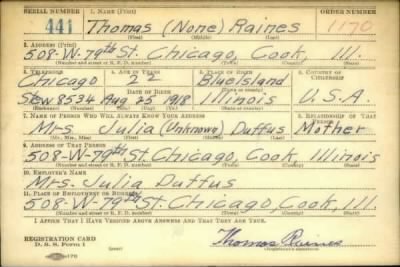 SERIAL NUMBER 1. NAME (Print) ORDER NUMBER
441 Thomas (None) Raines 1170
(First) (Middle) (Last)
2. ADDRESS (Print)
508-W-79th St. Chicago, Cook, Ill.
(Number and street or R. F. D. number) (Town) (County) (State)
3. TELEPHONE 4. AGE IN YEARS 5. PLACE OF BIRTH 6. COUNTRY OF CITIZENSHIP
Chicago 22 Blue Island
DATE OF BIRTH
Stew 8534 Aug 25, 1918 Illinois U.S.A.
7. NAME OF PERSON WHO WILL ALWAYS KNOW YOUR ADDRESS 8. RELATIONSHIP OF THAT PERSON
Mrs. Julia (Unknown) Duffus Mother
9. ADDRESS OF THAT PERSON
508-W-79th St. Chicago, Cook, Illinois
(Number and street or R. F. D. number) (Town) (County) (State)
10. EMPLOYER'S NAME
Mrs. Julia Duffus
11. PLACE OF EMPLOYMENT OR BUSINESS
508-W-79th St. Chicago, Cook, Ill.
(Number and street or R. F. D. number) (Town) (County) (State)
I AFFIRM THAT I HAVE VERIFIED ABOVE ANSWERS AND THAT THEY ARE TRUE.
REGISTRATION CARD
D. S. S. Form 1 Thomas Raines